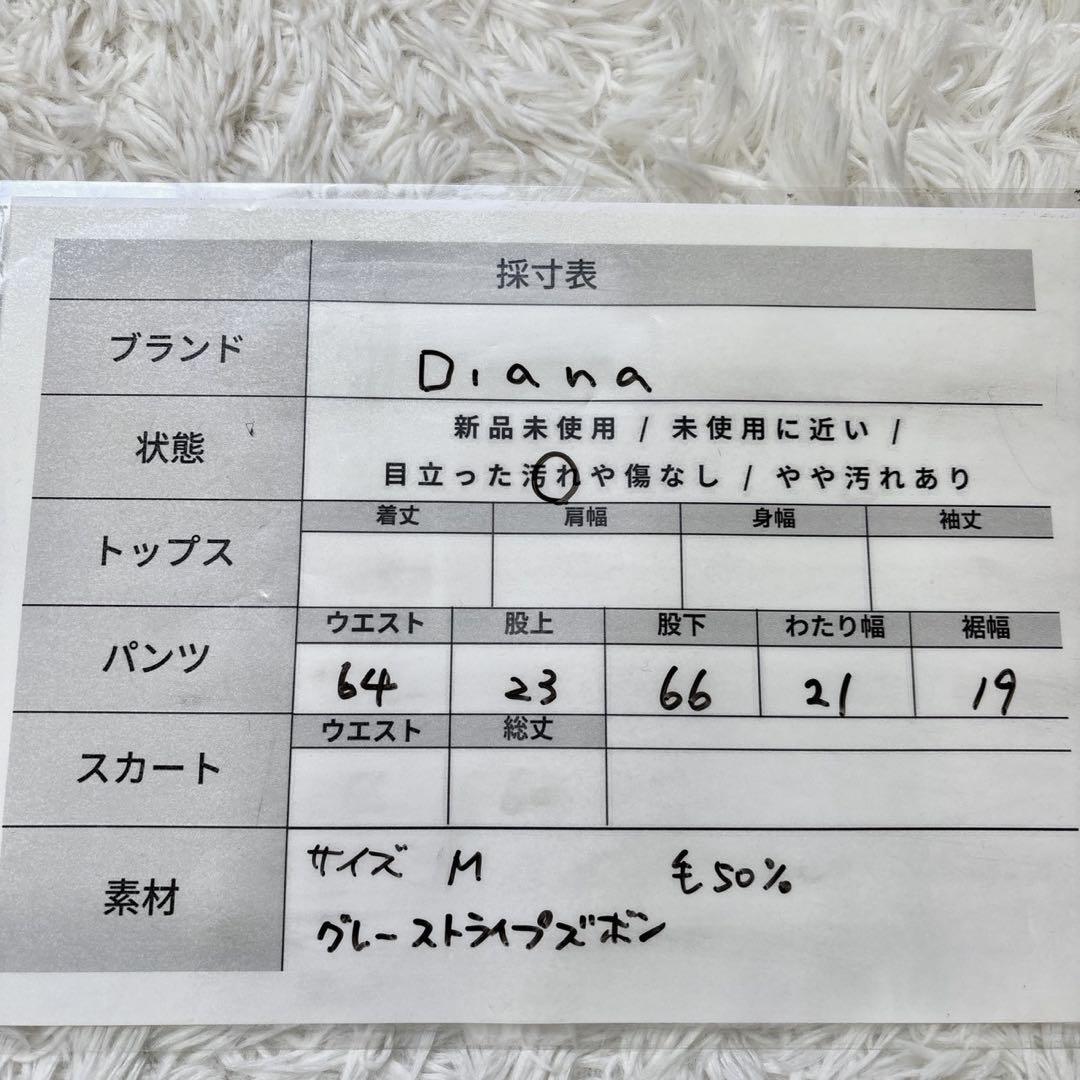 採寸表
ブランド Diana
状態 新品未使用 / 未使用に近い /
目立った汚れや傷なし / やや汚れあり
着丈 肩幅 身幅 袖丈
トップス
ウエスト 股上 股下 わたり幅 裾幅
パンツ 64 23 66 21 19
ウエスト 総丈
スカート
サイズ M 毛50%
素材
グレーストライプズボン